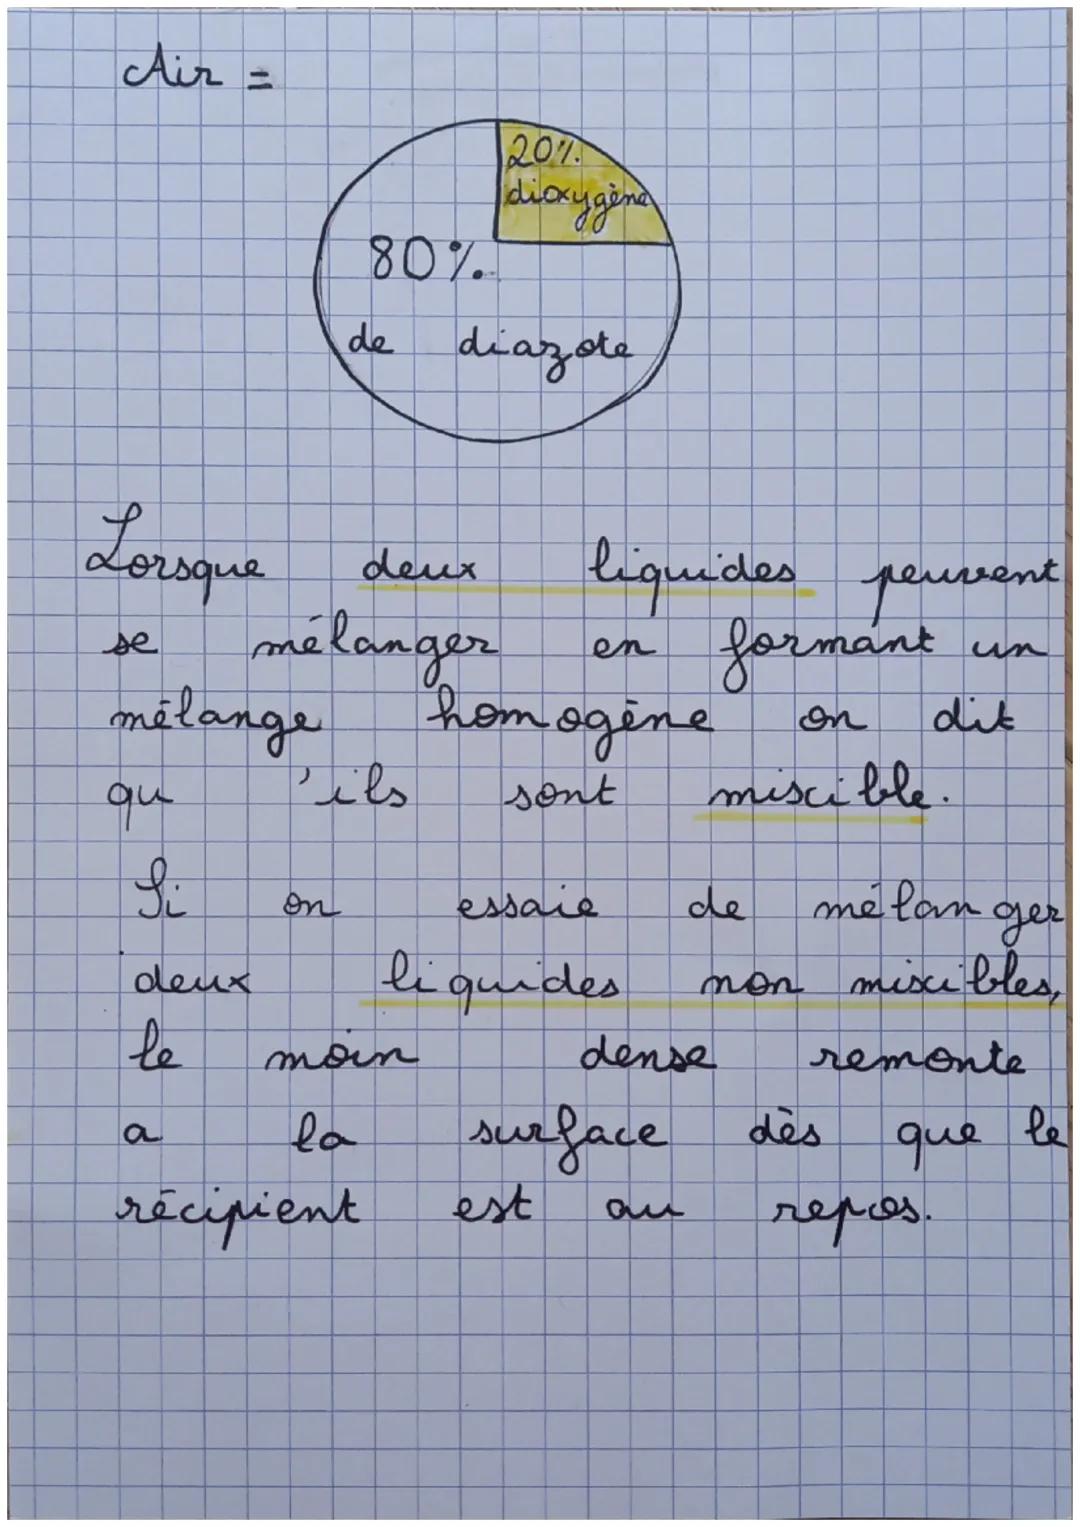 Air =
20%.
dioxygène
80%.
de diazote
Lorsque deux liquides peuvent
se mélanger en formant un
mélange homogène on dit
qu'ils sont miscible.
Si on essaie de mélanger
deux liquides non miscibles,
le moin dense remonte
a la surface dès que le
récipient est au repos.